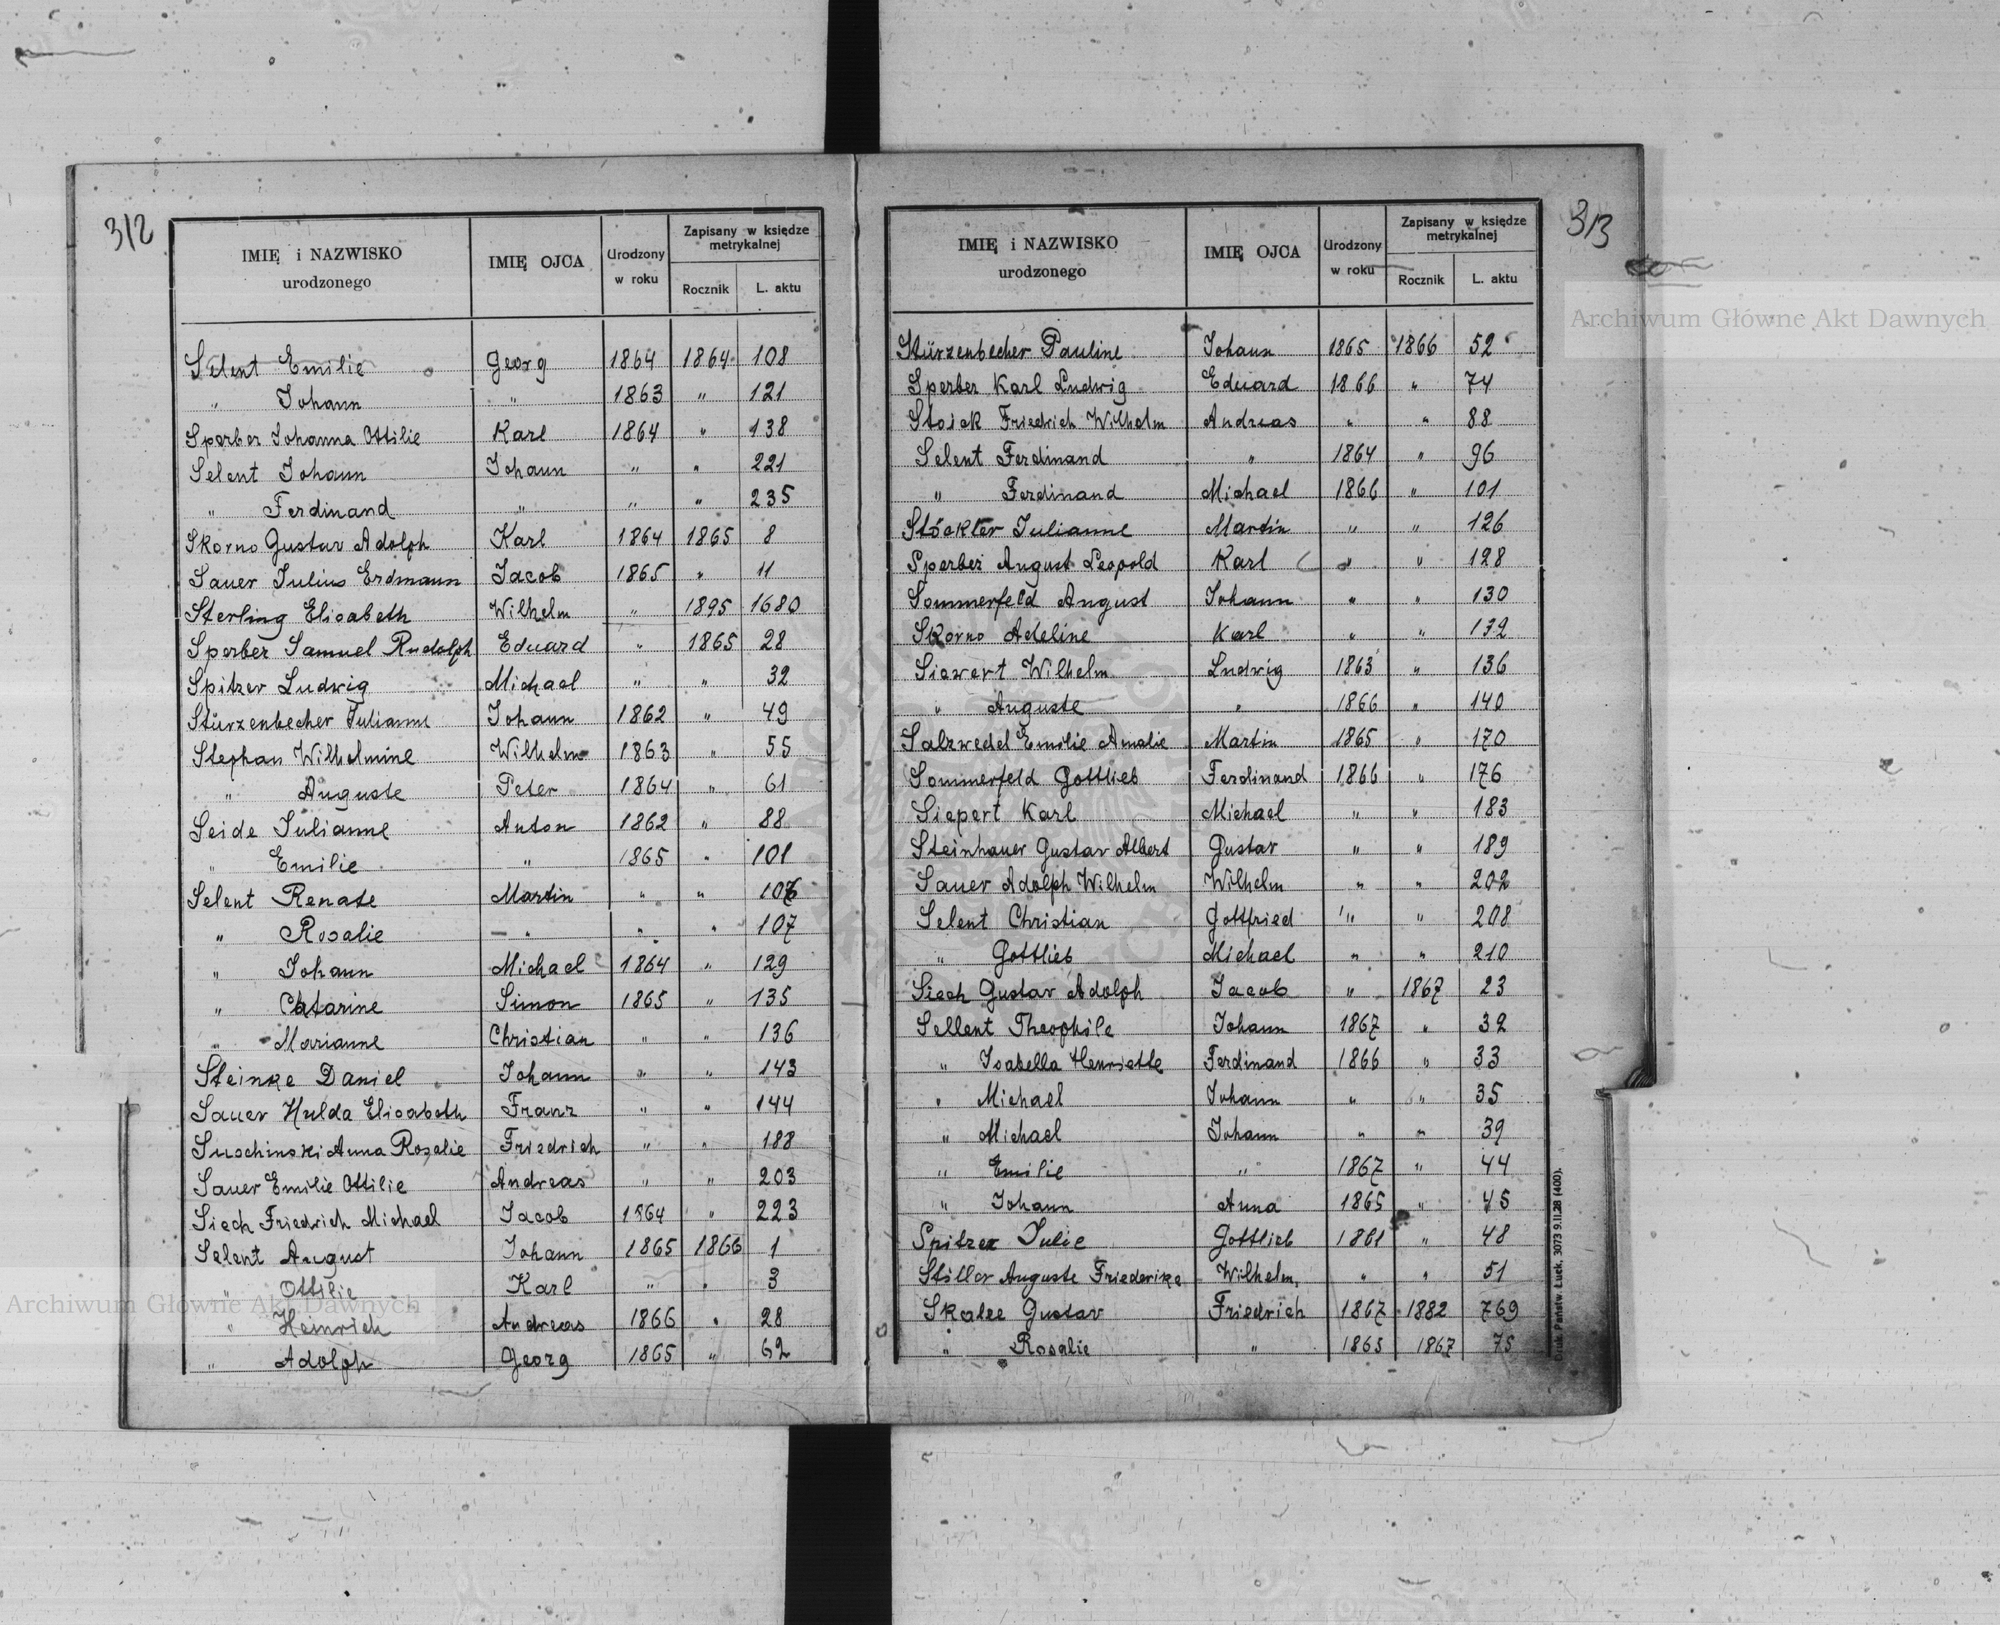 312
IMIĘ i NAZWISKO urodzonego IMIĘ OJCA Urodzony w roku Zapisany w księdze metrykalnej Rocznik L. aktu
Selent Emilie Georg 1864 1864 108
" Johann " 1863 " 121
Sperber Johanna Ottilie Karl 1864 " 138
Selent Johann Johann " " 221
" Ferdinand " " " 235
Skorno Gustav Adolph Karl 1864 1865 8
Sauer Julius Erdmann Jacob 1865 " 11
Sterling Elisabeth Wilhelm " 1895 1680
Sperber Samuel Rudolph Eduard " 1865 28
Spitzer Ludwig Michael " " 32
Stürzenbecher Julianne Johann 1862 " 49
Stephan Wilhelmine Wilhelm 1863 " 55
" Auguste Peter 1864 " 61
Seide Julianne Anton 1862 " 88
" Emilie " 1865 " 101
Selent Renate Martin " " 106
" Rosalie — " " " 107
" Johann Michael 1864 " 129
" Catarine Simon 1865 " 135
" Marianne Christian " " 136
Steinke Daniel Johann " " 143
Sauer Hulda Elisabeth Franz " " 144
Suschinski Anna Rosalie Friedrich " " 188
Sauer Emilie Ottilie Andreas " " 203
Siech Friedrich Michael Jacob 1864 " 223
Selent August Johann 1865 1866 1
" Ottilie Karl " " 3
" Heinrich Andreas 1866 " 28
" Adolph Georg 1865 " 62
313
IMIĘ i NAZWISKO urodzonego IMIĘ OJCA Urodzony w roku Zapisany w księdze metrykalnej Rocznik L. aktu
Stürzenbecher Pauline Johann 1865 1866 52
Sperber Karl Ludwig Eduard 1866 " 74
Stoick Friedrich Wilhelm Andreas " " 88
Selent Ferdinand " 1864 " 96
" Ferdinand Michael 1866 " 101
Stöckter Julianne Martin " " 126
Sperber August Leopold Karl " " 128
Sommerfeld August Johann " " 130
Skorno Adeline Karl " " 132
Siewert Wilhelm Ludwig 1863 " 136
" Auguste " 1866 " 140
Salzwedel Emilie Amalie Martin 1865 " 170
Sommerfeld Gottlieb Ferdinand 1866 " 176
Siepert Karl Michael " " 183
Steinhauer Gustav Albert Gustav " " 189
Sauer Adolph Wilhelm Wilhelm " " 202
Selent Christian Gottfried " " 208
" Gottlieb Michael " " 210
Siech Gustav Adolph Jacob " 1867 23
Sellent Theophile Johann 1867 " 32
" Isabella Henriette Ferdinand 1866 " 33
" Michael Johann " " 35
" Michael Johann " " 39
" Emilie " 1867 " 44
" Johann Anna 1865 " 45
Spitzer Julie Gottlieb 1861 " 48
Stiller Auguste Friederike Wilhelm " " 51
Skalee Gustav Friedrich 1867 1882 769
" Rosalie " 1865 1867 75
Druk. Państw. Łuck. 3073 9.II.28 (400).
Archiwum Główne Akt Dawnych
Archiwum Główne Akt Dawnych